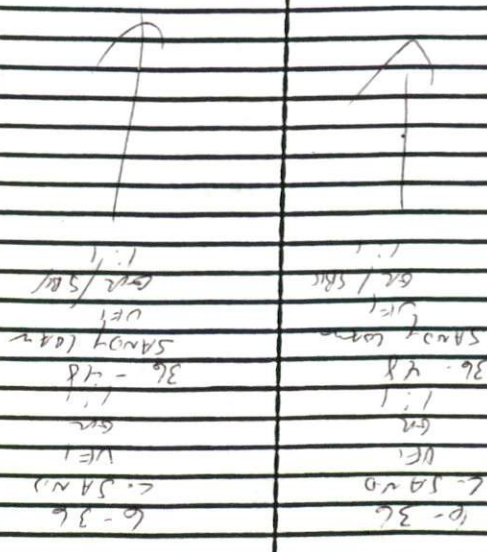 6-36
L-SAND
VFi
GR
1:1
36-48
SANDY LOAM
VFi
GR/SBK
1:1
6-36
L.SAND
VFi
GR
1:1
36-48
SANDY LOAM
VFi
GR/SBK
1:1